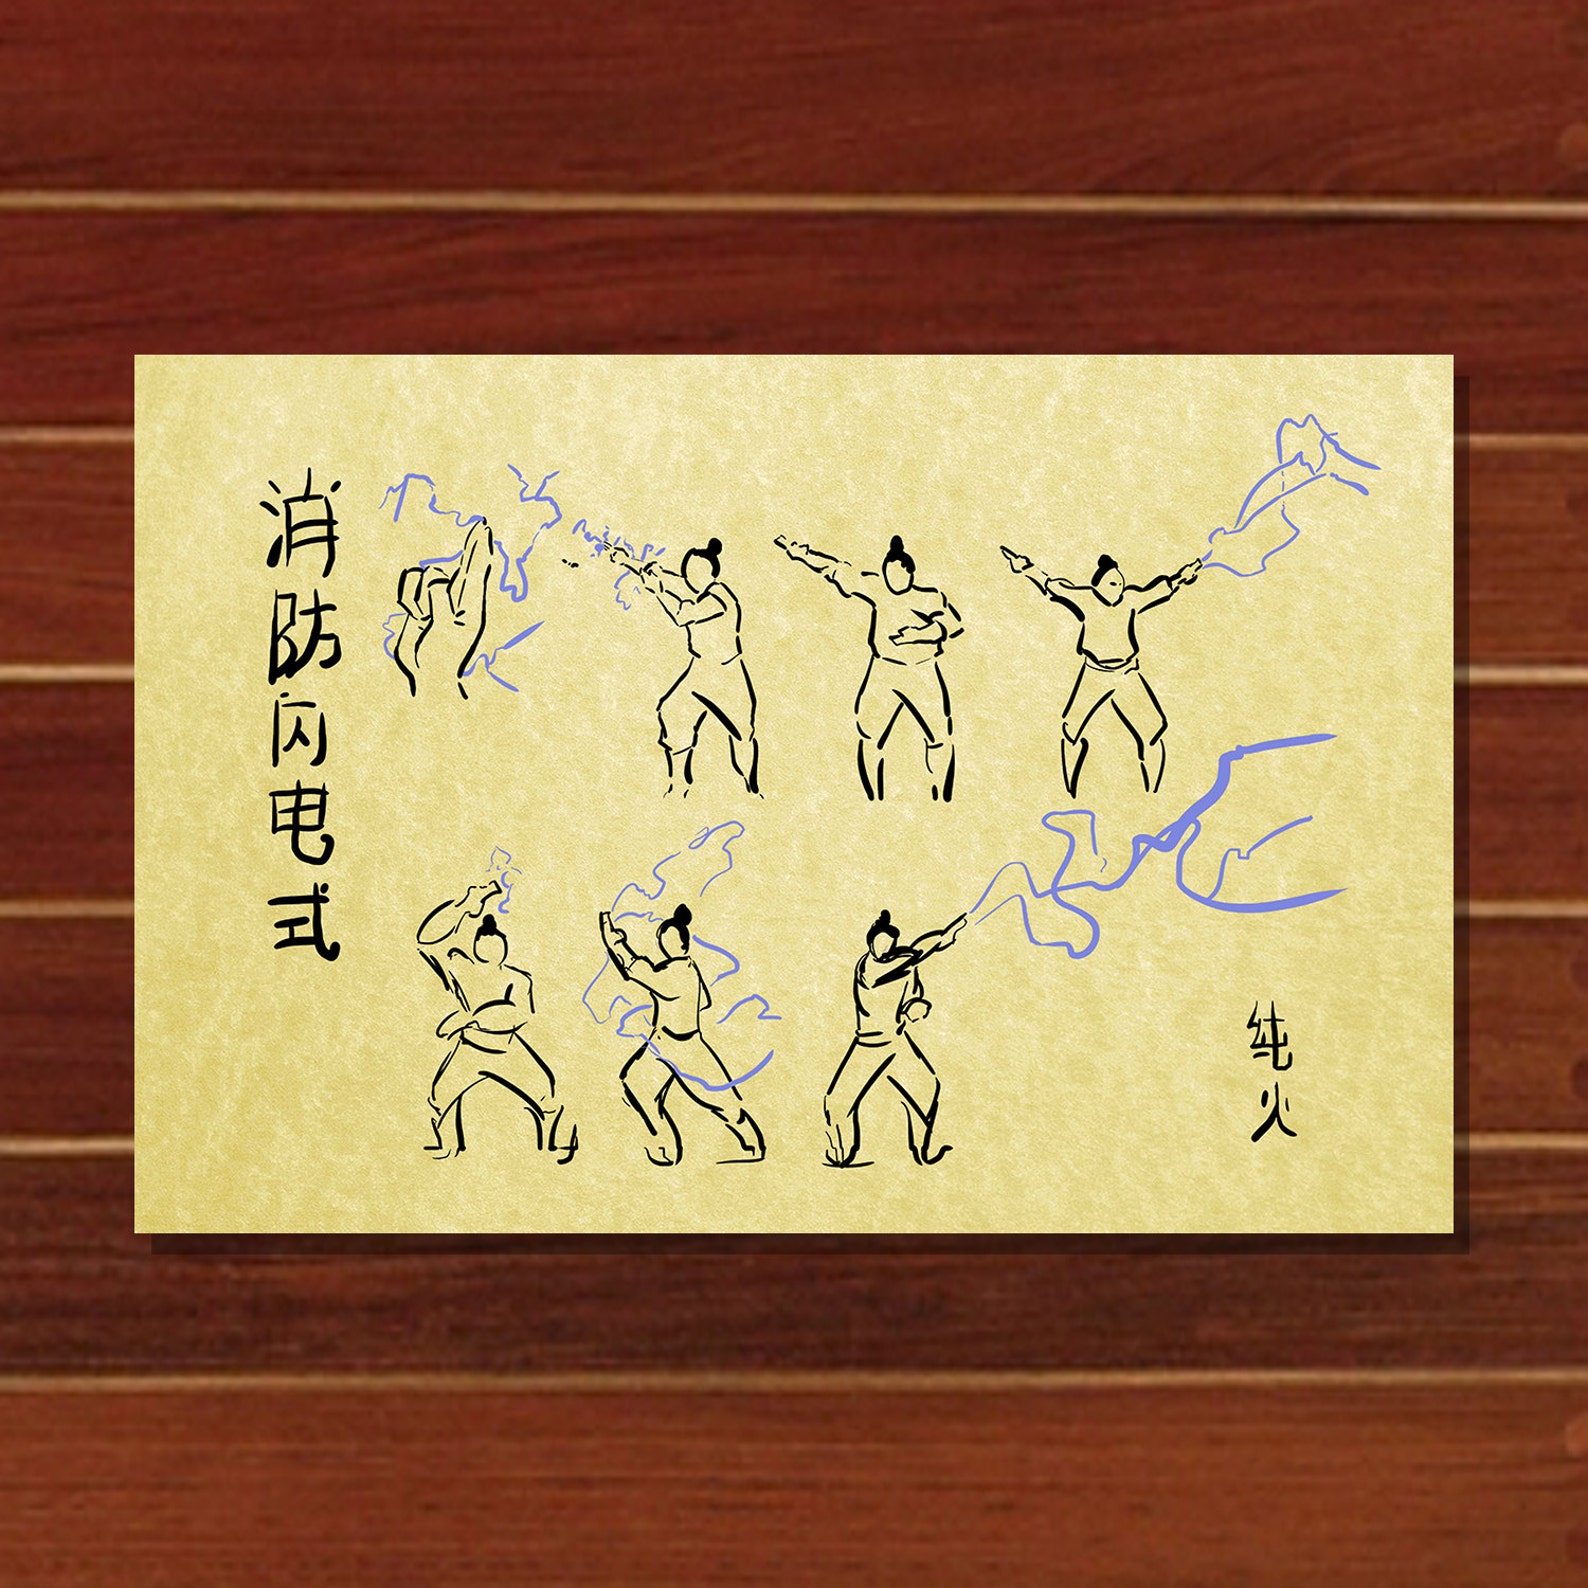 消防闪电式
纯火